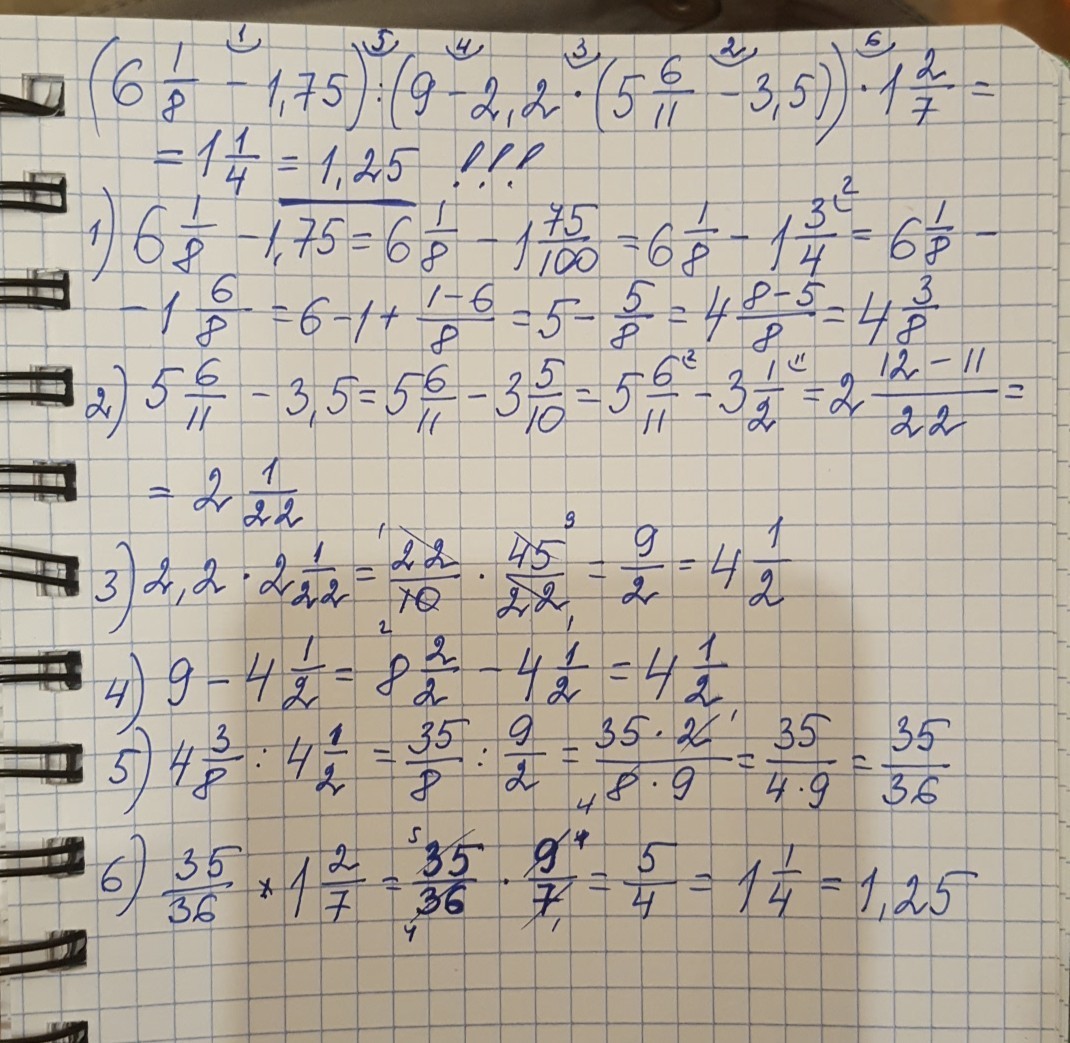 (6 1/8 - 1,75) : (9 - 2,2 · (5 6/11 - 3,5)) · 1 2/7 =
= 1 1/4 = 1,25 !!!
1) 6 1/8 - 1,75 = 6 1/8 - 1 75/100 = 6 1/8 - 1 3/4 = 6 1/8 -
- 1 6/8 = 6 - 1 + (1-6)/8 = 5 - 5/8 = 4 (8-5)/8 = 4 3/8
2) 5 6/11 - 3,5 = 5 6/11 - 3 5/10 = 5 6/11 - 3 1/2 = 2 (12 - 11)/22 =
= 2 1/22
3) 2,2 · 2 1/22 = 22/10 · 45/22 = 9/2 = 4 1/2
4) 9 - 4 1/2 = 8 2/2 - 4 1/2 = 4 1/2
5) 4 3/8 : 4 1/2 = 35/8 : 9/2 = (35 · 2)/(8 · 9) = 35/(4·9) = 35/36
6) 35/36 * 1 2/7 = 35/36 · 9/7 = 5/4 = 1 1/4 = 1,25